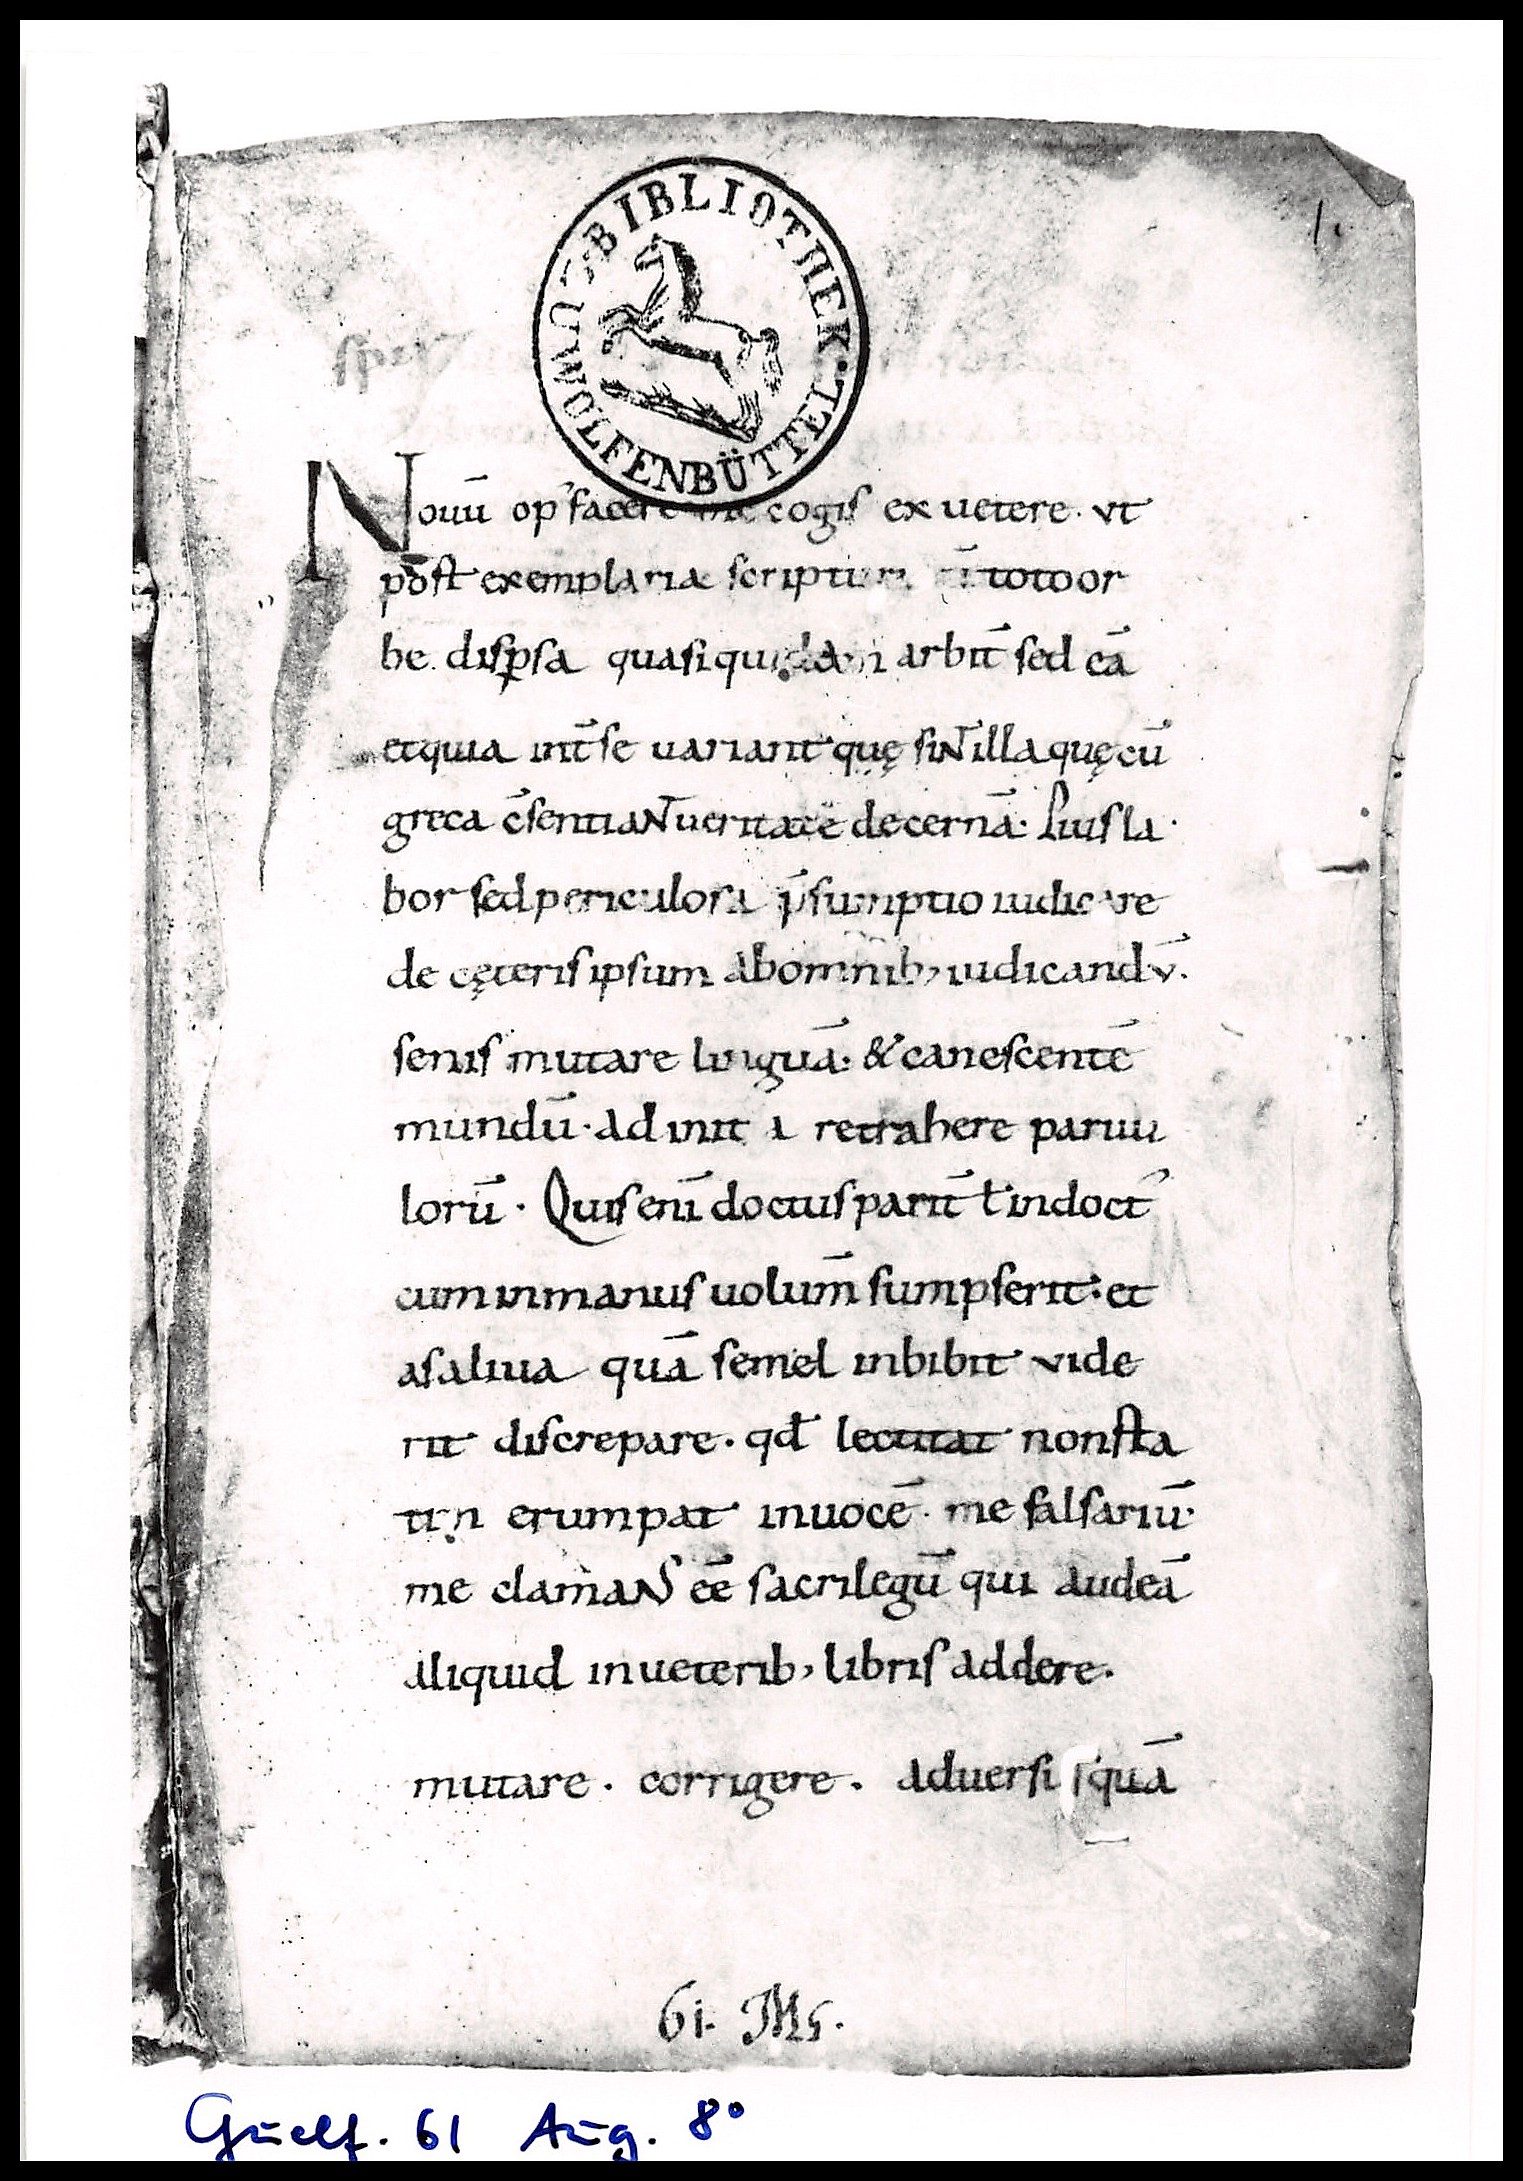 BIBLIOTHEK
WOLFENBÜTTEL
1.
Nouū op' facere me cogis ex uetere. vt
post exemplaria scriptur ī toto or
be disp̱sa quasi quidam arbit̄ sed eā
et quia int̄ se uariant quę siN̄ illa quę cū
greca c̄sentiaN̄ ueritatē decernā. Pius la
bor sed periculosa p̄sumptio iudicare
de cęteris ipsum ab omnib; iudicandū.
senis mutare linguā. & canescentē
mundū. ad initia retrahere paruu
lorū. Quis enī doctus parit̄ ł indoct'
cum in manus uolum̄ sumpserit. et
a saliua quā semel inbibit vide
rit discrepare. qđ lectitat non sta
tim erumpat in uocē. me falsariū.
me clamaNs ēē sacrilegū qui audeā
aliquid in ueterib; libris addere.
mutare. corrigere. aduersis quā
61. Ms.
Guelf. 61 Aug. 8°